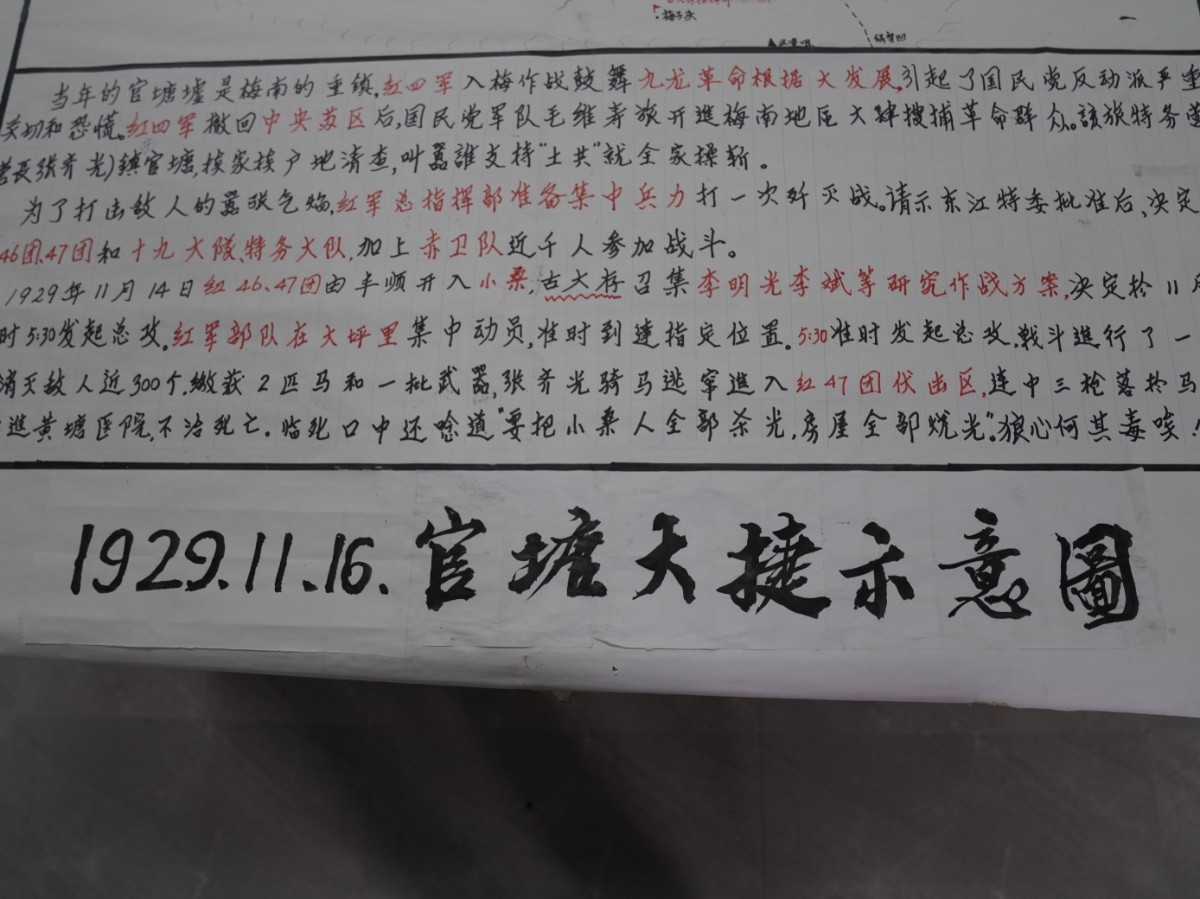 梅子头
当年的官塘墟是梅南的重镇,红四军入梅作战鼓舞九龙革命根据大发展,引起了国民党反动派严重
关切和恐慌。红四军撤回中央苏区后,国民党军队毛维寿旅开進梅南地区大肆搜捕革命群众。該旅特务营
营長張齐光)鎮官塘,挨家挨户地清查,叫嚣誰支持"土共"就全家操斩。
为了打击敌人的嚣张气焰,红军总指挥部准备集中兵力打一次歼灭战。请示东江特委批准后,决定
46团、47团和十九大隊、特务大队,加上赤卫队近千人参加战斗。
1929年11月14日红46、47团由丰顺开入小桑,古大存召集李明光李斌等研究作战方案,决定於11月
时5:30发起总攻。红军部队在大坪里集中动员,准时到達指定位置。5:30准时发起总攻,戰斗進行了一
消灭敌人近300个,缴获2匹马和一批武器,张齐光骑马逃窜進入红47团伏击区,连中三枪落於马
進黄塘医院,不治死亡。临死口中还唸道"要把小桑人全部杀光,房屋全部烧光"。狼心何其毒唉!
1929.11.16.官塘大捷示意圖